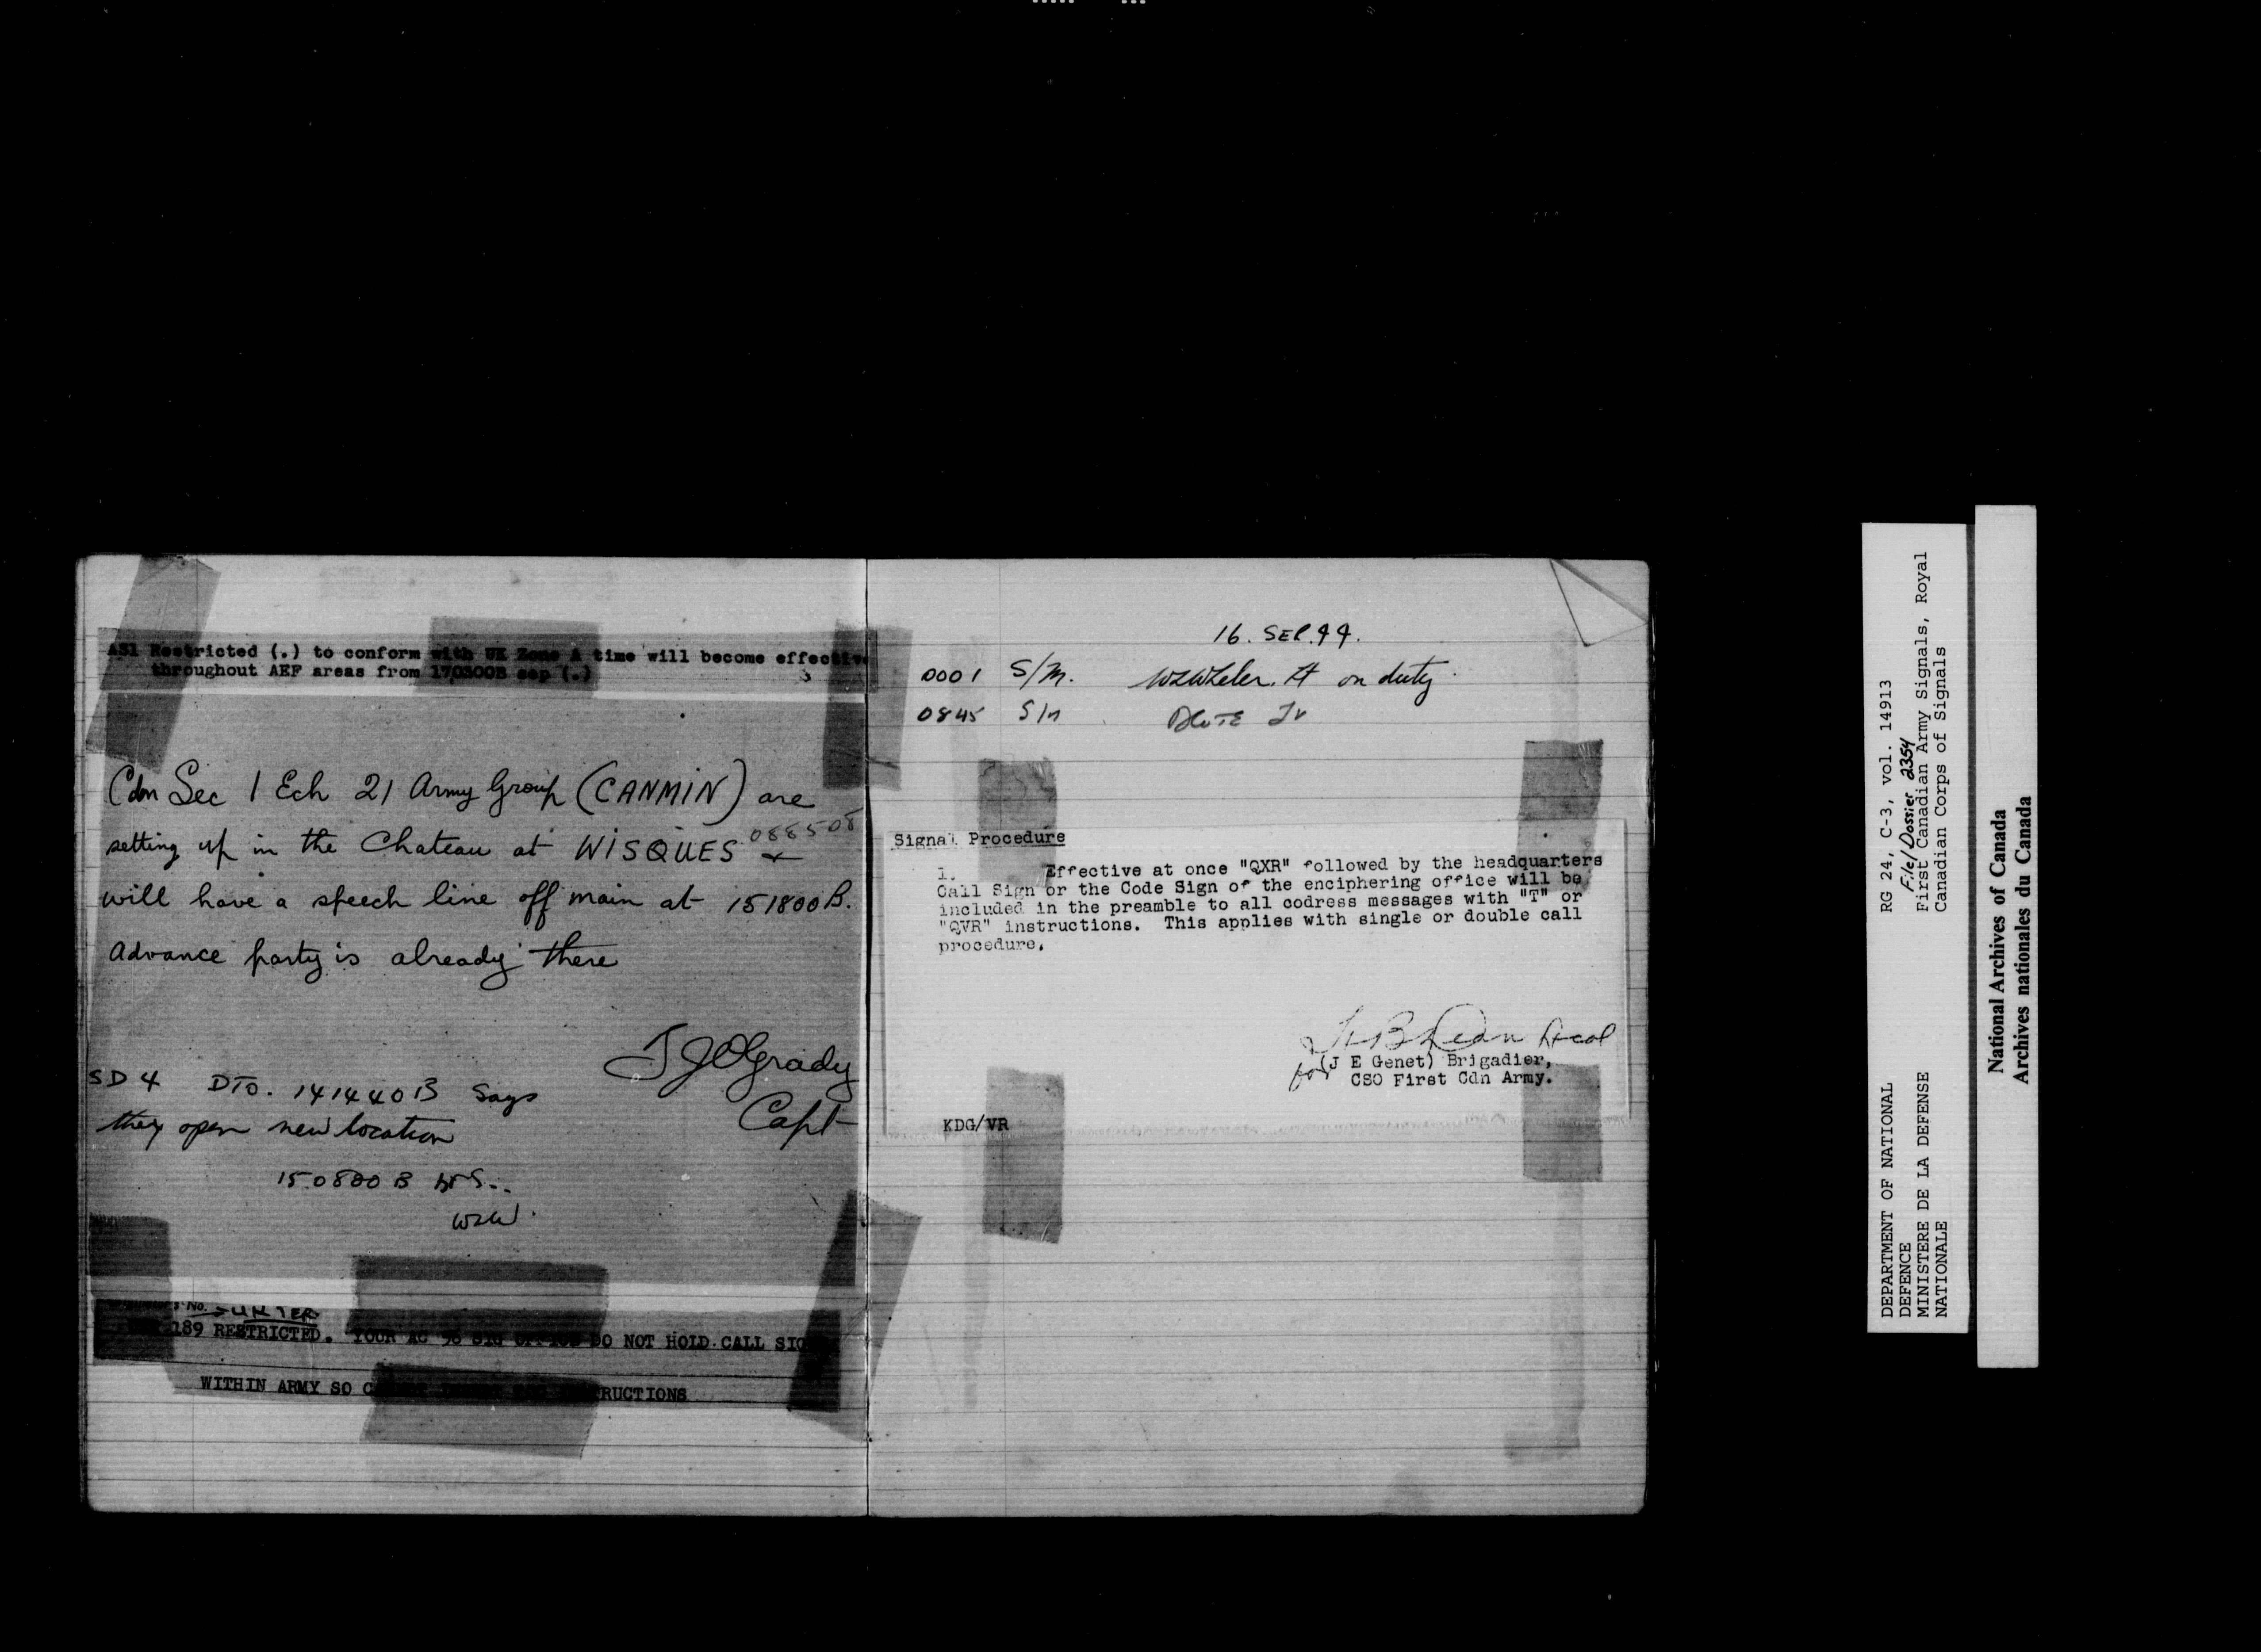 A31 Restricted (.) to conform with UK Zone A time will become effective
throughout AEF areas from 170300B sep (.)
Cdn Sec 1 Ech 21 Army Group (CANMIN) are
setting up in the Chateau at WISQUES 088508 +
will have a speech line off main at 151800B.
Advance party is already there
J J O'Grady
Capt
SD 4 DTO. 141440B Says
they open new location
150800B
WRITER'S No.
189 RESTRICTED. YOUR AC 98 SIG OFFICE DO NOT HOLD CALL
WITHIN ARMY SO INSTRUCTIONS
16. SEP. 44.
0001 S/M. on duty
0845 S/M
Signal Procedure
1. Effective at once "QXR" followed by the headquarters
Call Sign or the Code Sign of the enciphering office will be
included in the preamble to all codress messages with "T" or
"QVR" instructions. This applies with single or double call
procedure.
for (J E Genet) Brigadier,
CSO First Cdn Army.
KDG/VR
RG 24, C-3, vol. 14913
File/Dossier 2354
First Canadian Army Signals, Royal
Canadian Corps of Signals
DEPARTMENT OF NATIONAL
DEFENCE
MINISTERE DE LA DEFENSE
NATIONALE
National Archives of Canada
Archives nationales du Canada